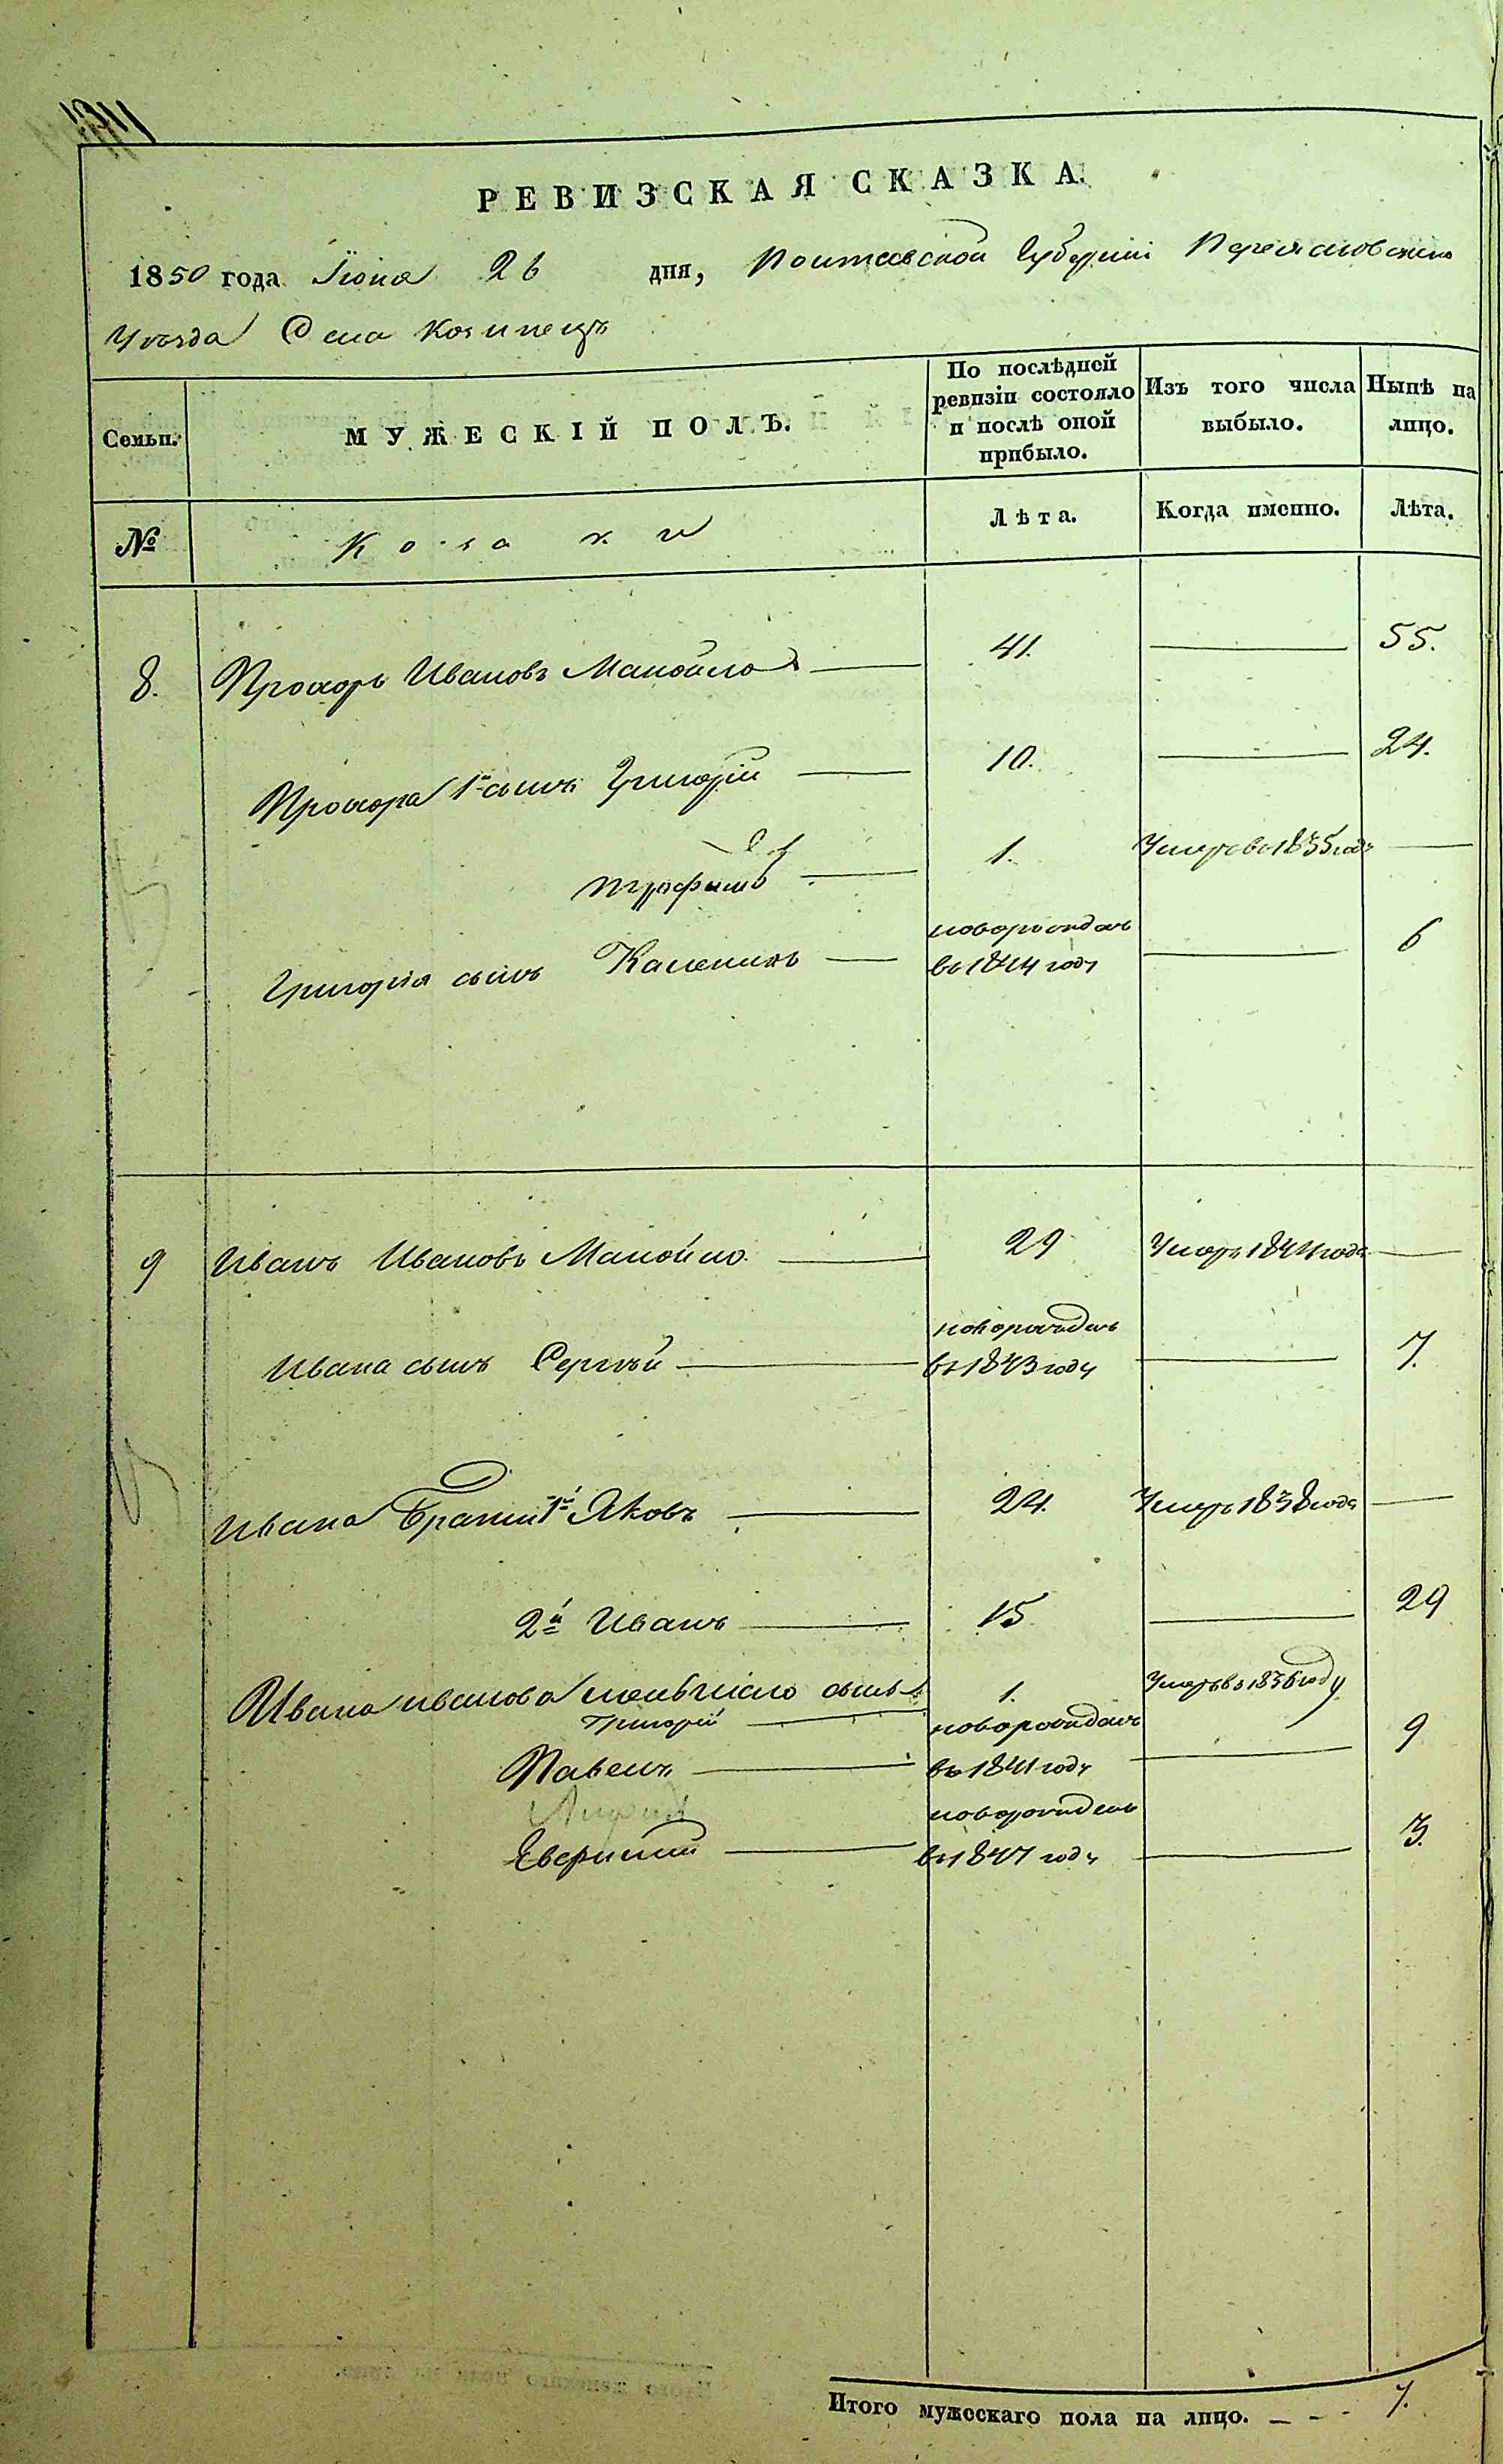 РЕВИЗСКАЯ СКАЗКА.
1850 года Іюня 26 дня, Полтавской Губерніи Переясловскаго
Уѣзда Села Козинецъ
Семьи.
МУЖЕСКІЙ ПОЛЪ.
По послѣдней ревизіи состояло и послѣ оной прибыло.
Изъ того числа выбыло.
Нынѣ на лицо.
№
Козаки
Лѣта.
Когда именно.
Лѣта.
8. Прохоръ Ивановъ Манойло 41. 55.
Прохора 1й сынъ Григорій 10. 24.
2й
Трофимъ 1. Умеръ въ 1835 годѣ
новорожденъ
Григорія сынъ Каленикъ въ 1844 году 6
9 Иванъ Ивановъ Манойло 29 Умеръ 1844 года
новорожденъ
Ивана сынъ Сергѣй въ 1843 году 7.
Ивана Братья 1й Яковъ 24. Умеръ 1838 года
2й Иванъ 15 29
Ивана Иванова меньшаго сынъ 1. Умеръ въ 1836 году
Григорій новорожденъ
Павелъ въ 1841 году 9
новорожденъ
въ 1847 году 3.
Итого мужескаго пола на лицо. 7.